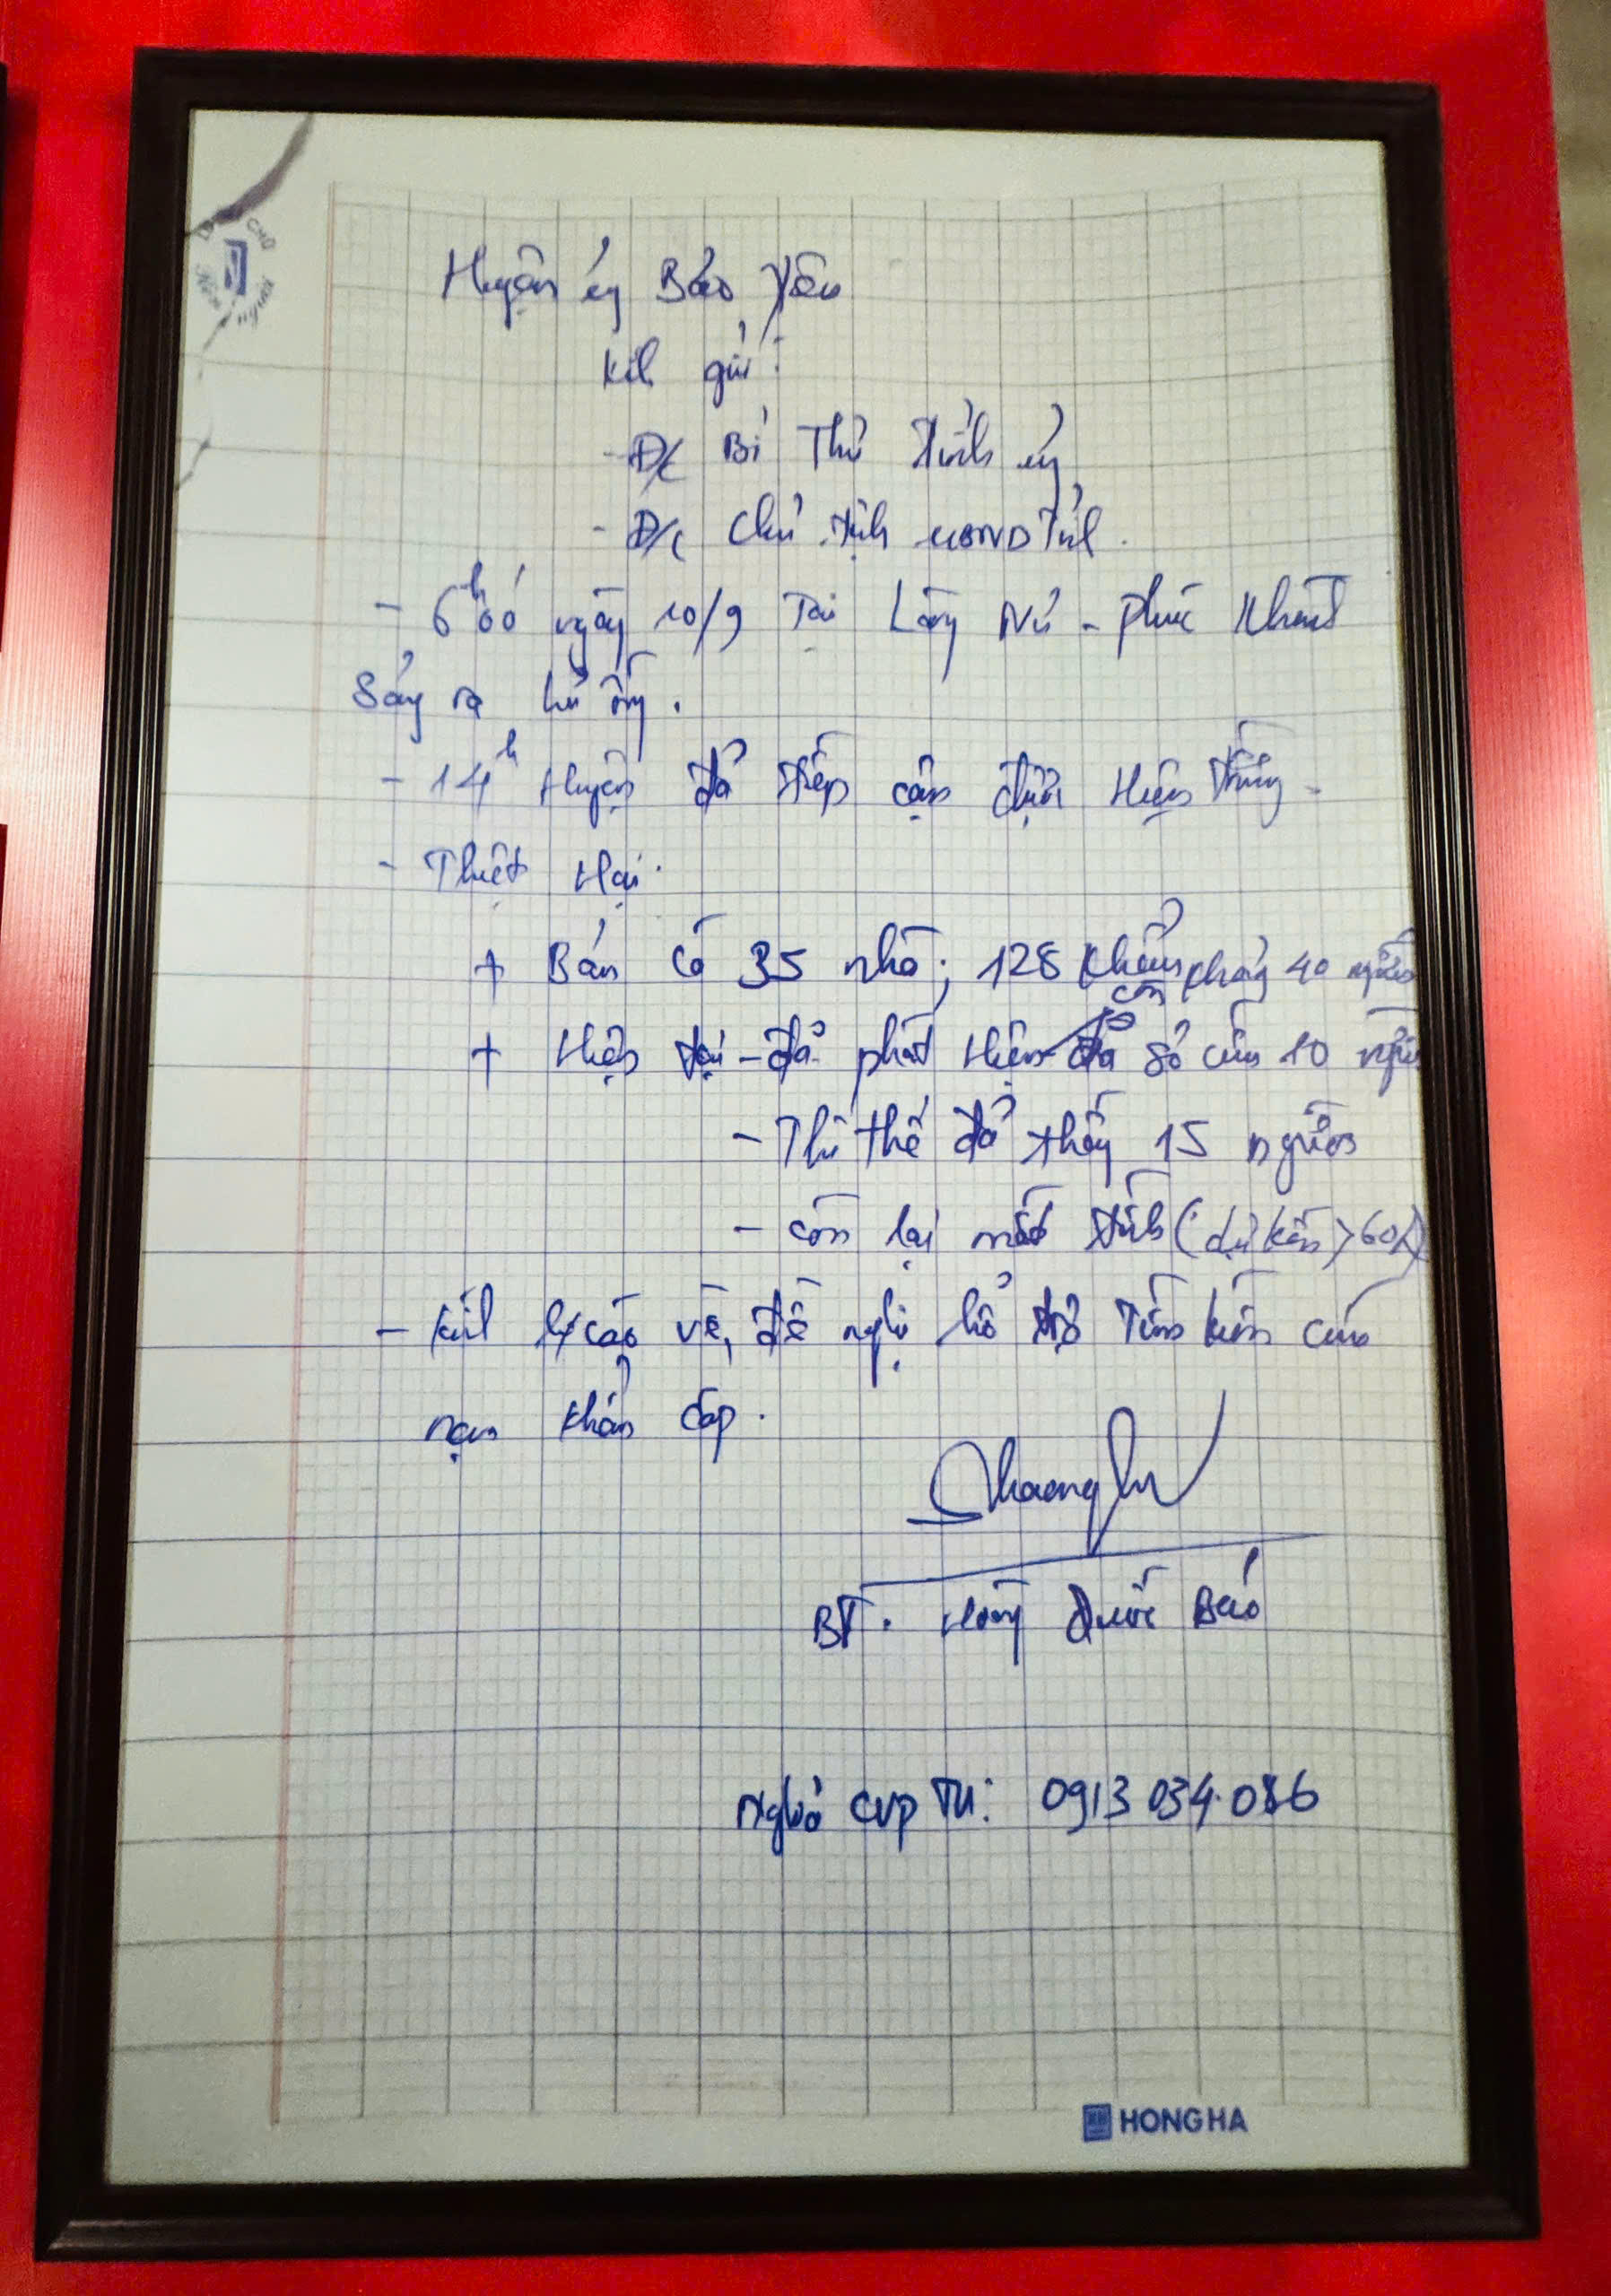 Huyện ủy Bảo Yên
Kính gửi:
- Đ/c Bí Thư tỉnh ủy
- Đ/c Chủ tịch UBND Tỉnh.
- 6h00 ngày 10/9 Tại Làng Nủ - Phúc Khánh
Sảy ra lũ ống.
- 14h Huyện đã tiếp cận được Hiện trường -
- Thiệt Hại.
+ Bản có 35 nhà; 128 khẩu khoảng 40 người
+ Hiện tại - đã phát Hiện còn đã số cứu 10 người
- Thi thể đã thấy 15 người
- còn lại mất tích (dự kiến > 60
- Kính b/cáo về, đề nghị hỗ trợ Tìm kiếm cứu
nạn khẩn cấp.
BT. Hoàng Quốc Bảo
Nghĩa CVP TU: 0913 034.086
HONG HA